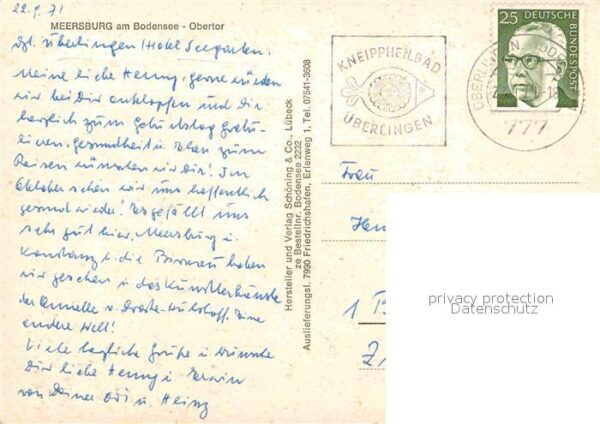 22.9.71
MEERSBURG am Bodensee - Obertor
z.Zt. Überlingen/Hotel Seegarten.
Meine liebe Henny, gerne würden
wir bei Dir anklopfen und Dir
herzlich zum Geburtstag gratu-
lieren, Gesundheit u. zum
Reisen wünschen wir Dir! Im
Oktober sehen wir uns hoffentlich
gesund wieder! Es gefällt uns
sehr gut hier, Meersburg u.
Konstanz u. die Birnau haben
wir gesehen u. das
der Annette v. Droste-Hülshoff. Eine
andere Welt!
Viele herzliche Grüße u. Wünsche
Dir liebe Henny u. Erwin
von Deiner u. Heinz
Hersteller und Verlag Schöning & Co., Lübeck
ze Bestellnr. Bodensee 2232
Auslieferungsl. 7990 Friedrichshafen, Erlenweg 1, Tel. 07541-3608
KNEIPPHEILBAD
ÜBERLINGEN
25 DEUTSCHE
BUNDESPOST
ÜBERLINGEN, BODENSEE
777
Frau
Hen
1 B
privacy protection
Datenschutz